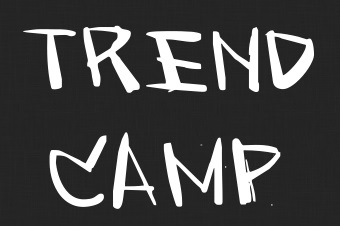 TREND
CAMP